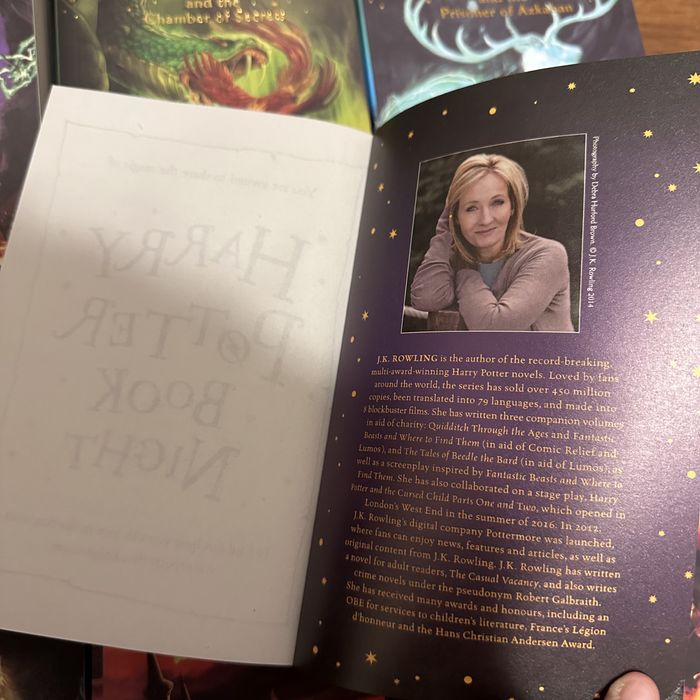 and the
Chamber of Secrets
and the
Prisoner of Azkaban
HARRY
POTTER
BOOK
NIGHT
Photography by Debra Hurford Brown. © J.K. Rowling 2014
J.K. ROWLING is the author of the record-breaking,
multi-award-winning Harry Potter novels. Loved by fans
around the world, the series has sold over 450 million
copies, been translated into 79 languages, and made into
8 blockbuster films. She has written three companion volumes
in aid of charity: Quidditch Through the Ages and Fantastic
Beasts and Where to Find Them (in aid of Comic Relief and
Lumos), and The Tales of Beedle the Bard (in aid of Lumos), as
well as a screenplay inspired by Fantastic Beasts and Where to
Find Them. She has also collaborated on a stage play, Harry
Potter and the Cursed Child Parts One and Two, which opened in
London's West End in the summer of 2016. In 2012,
J.K. Rowling's digital company Pottermore was launched,
where fans can enjoy news, features and articles, as well as
original content from J.K. Rowling. J.K. Rowling has written
a novel for adult readers, The Casual Vacancy, and also writes
crime novels under the pseudonym Robert Galbraith.
She has received many awards and honours, including an
OBE for services to children's literature, France's Légion
d'honneur and the Hans Christian Andersen Award.